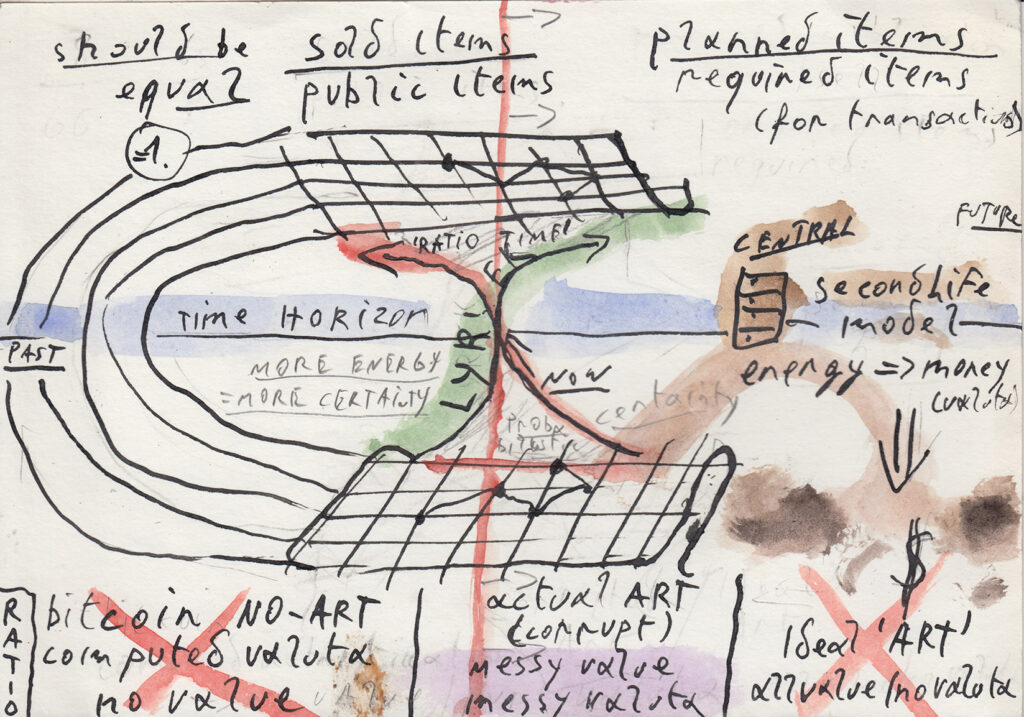 should be
equal
sold items
public items
planned items
required items
(for transactions)
=1.
'RATIO TIME'
FUTURE
CENTRAL
secondlife
model
TIME HORIZON
PAST
LYRIK
MORE ENERGY
=MORE CERTAITY
NOW
centainty
energy => money
(valuta)
$
RATIO
bitcoin NO-ART
computed valuta
no value
actual ART
(corrupt)
messy value
messy valuta
Ideal 'ART'
all value/no valuta